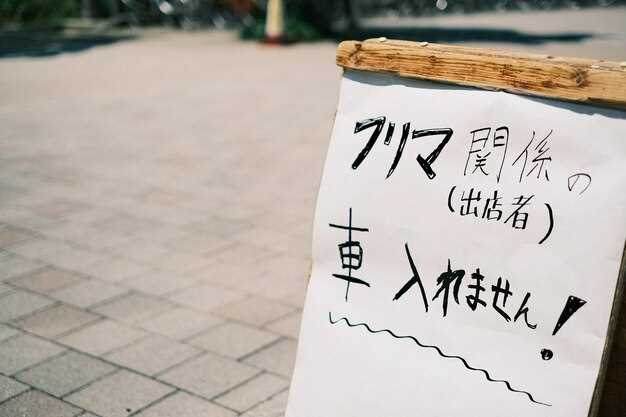 フリマ関係の
(出店者)
車入れません!